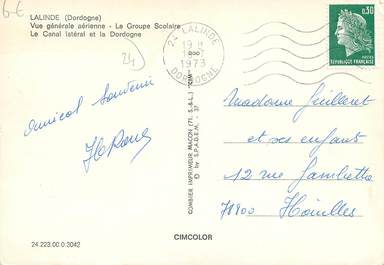 6€
LALINDE (Dordogne)
Vue générale aérienne - Le Groupe Scolaire
Le Canal latéral et la Dordogne
24
24 LALINDE
19 H
1973
DORDOGNE
0,30
REPUBLIQUE FRANÇAISE
Amical Souvenir
COMBIER IMPRIMEUR MACON (71. S.-&-L.) "CIM"
© by S.P.A.D.E.M. - 37
Madame Guilleret
et ses enfants
12 rue Gambetta
78800 Houilles
24.223.00.0.3042
CIMCOLOR